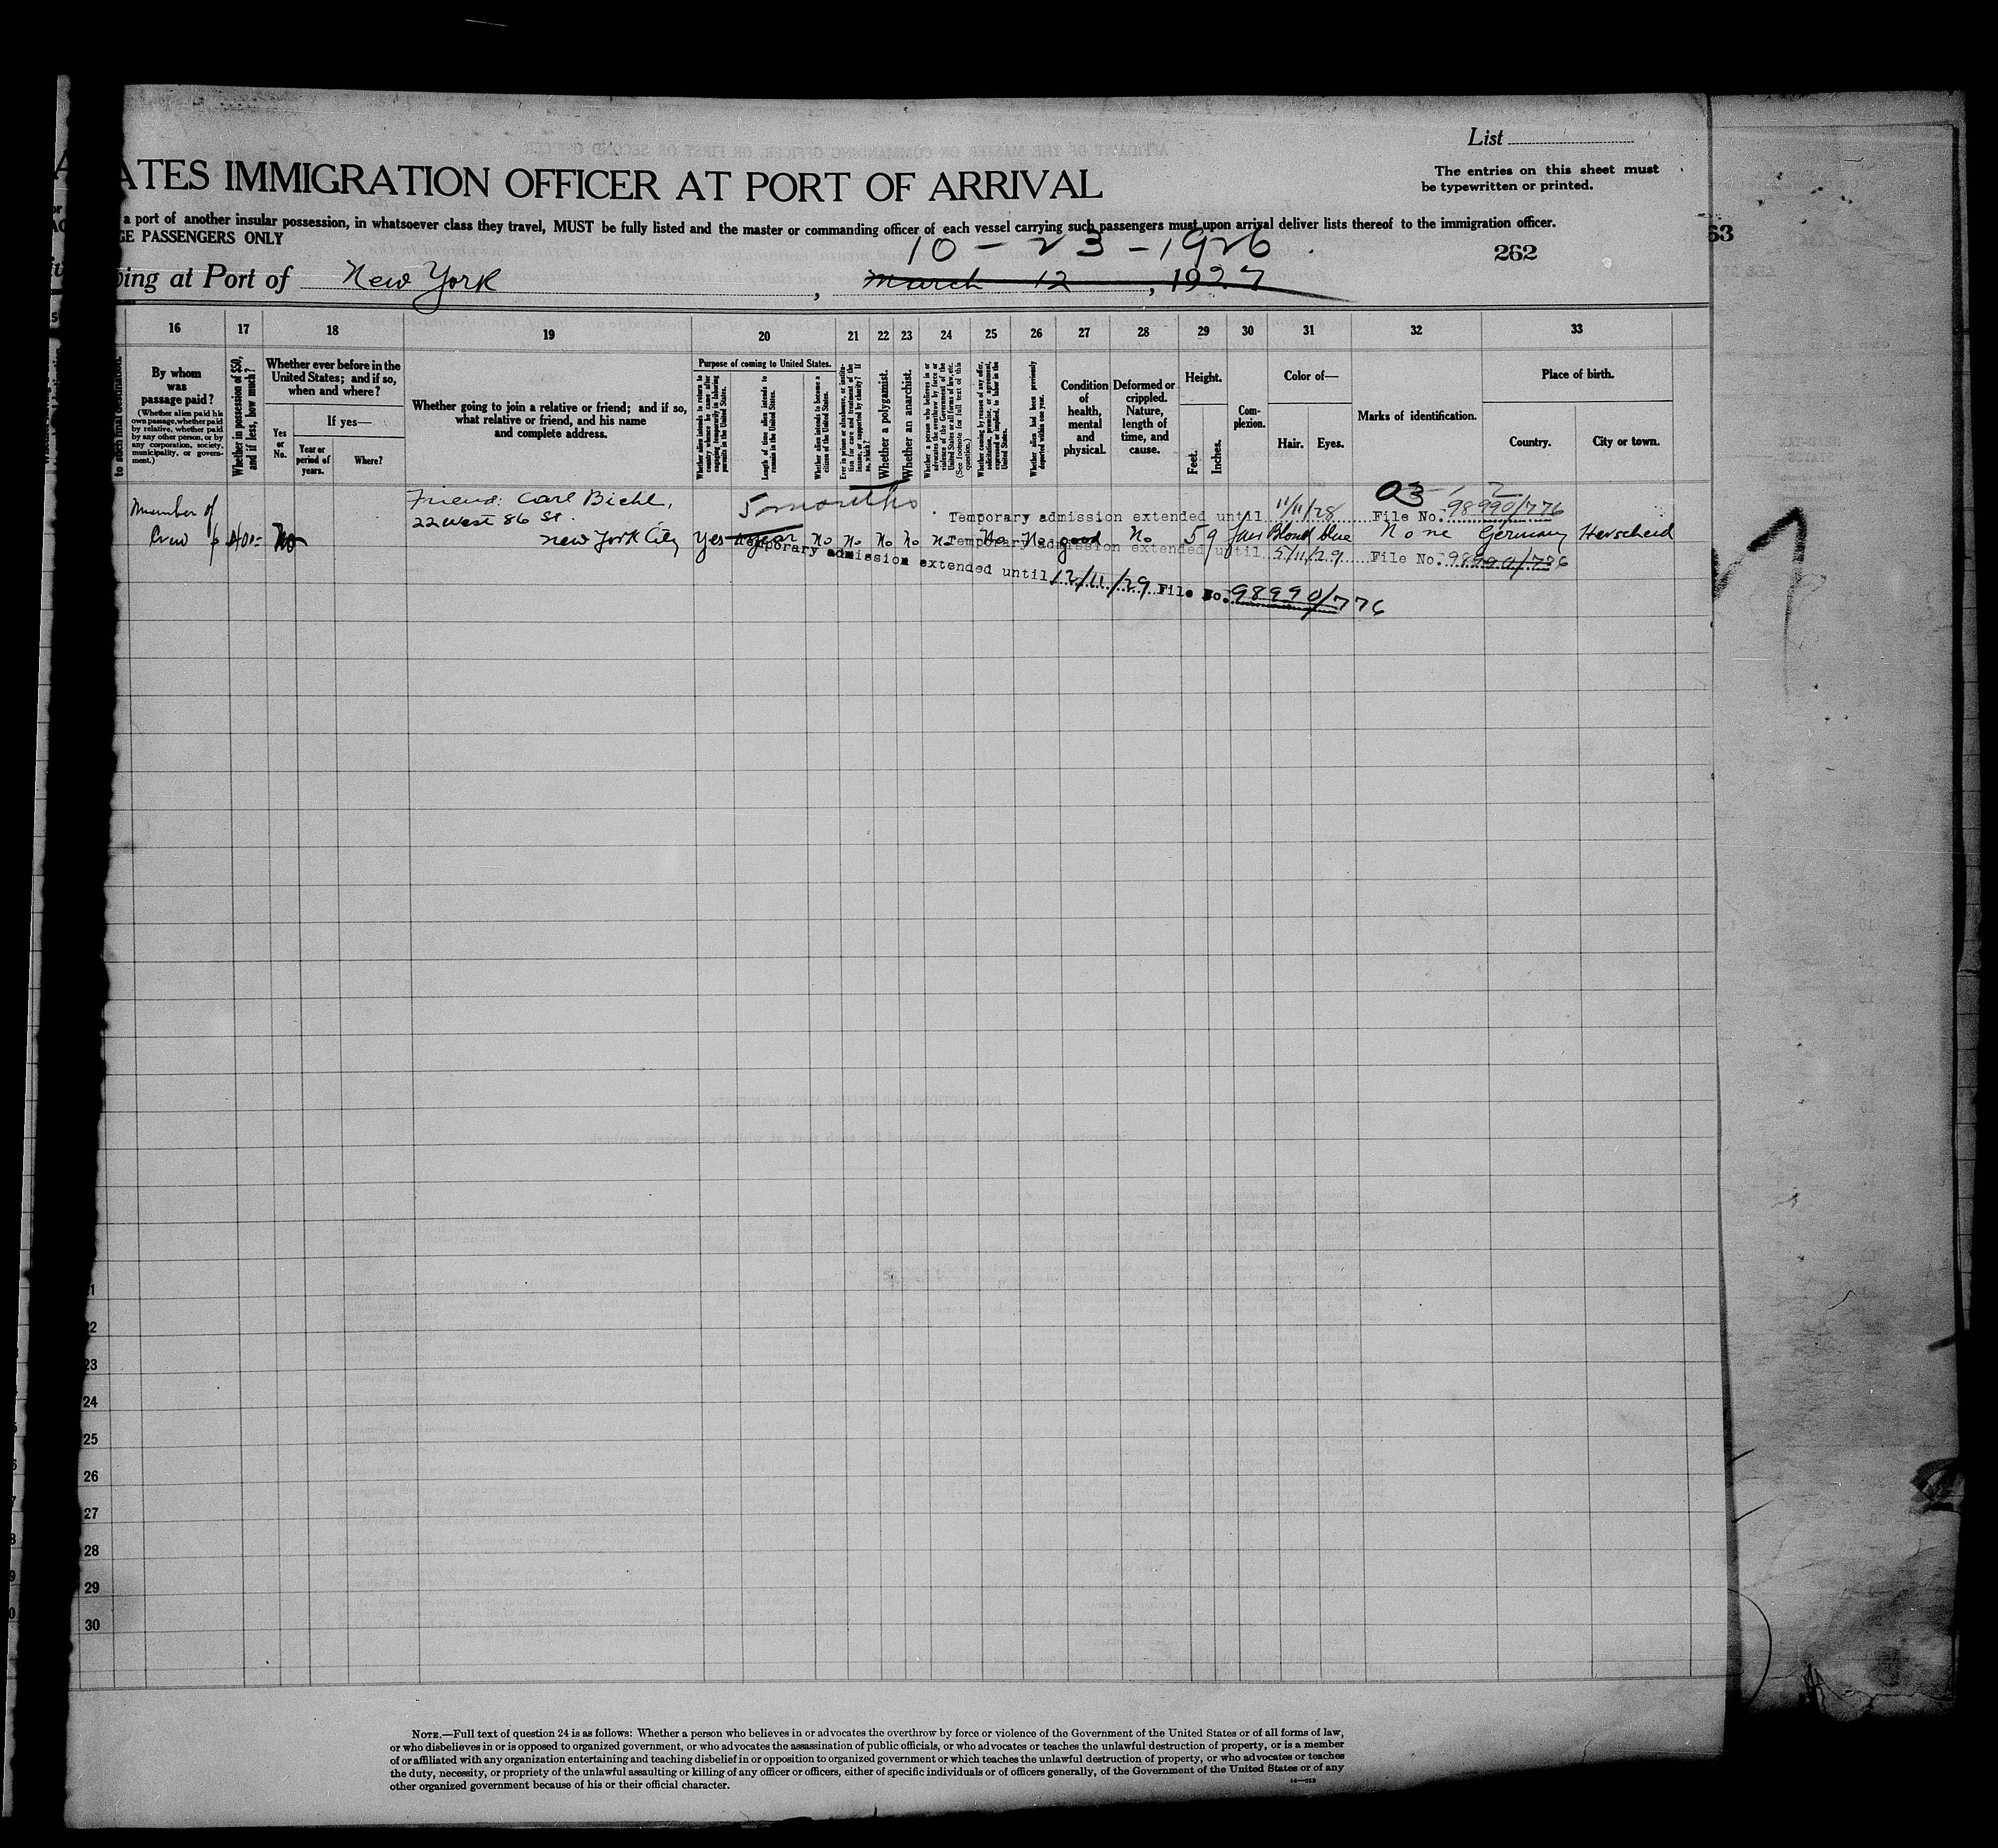 List
ATES IMMIGRATION OFFICER AT PORT OF ARRIVAL
The entries on this sheet must
be typewritten or printed.
a port of another insular possession, in whatsoever class they travel, MUST be fully listed and the master or commanding officer of each vessel carrying such passengers must upon arrival deliver lists thereof to the immigration officer.
GE PASSENGERS ONLY
10 - 23 - 1926
262
63
ing at Port of New York, March 12, 1927
16 17 18 19 20 21 22 23 24 25 26 27 28 29 30 31 32 33
to such final destination.
By whom
was
passage paid?
(Whether alien paid his
own passage, whether paid
by relative, whether paid
by any other person, or by
any corporation, society,
municipality, or govern-
ment.)
Whether in possession of $50,
and if less, how much?
Whether ever before in the
United States; and if so,
when and where?
Yes
or
No.
If yes—
Year or
period of
years.
Where?
Whether going to join a relative or friend; and if so,
what relative or friend, and his name
and complete address.
Purpose of coming to United States.
Whether alien intends to return to
country whence he came after
engaging temporarily in laboring
pursuits in the United States.
Length of time alien intends to
remain in the United States.
Whether alien intends to become a
citizen of the United States.
Ever in prison or almshouse, or institu-
tion for care and treatment of the
insane, or supported by charity? If
so, which?
Whether a polygamist.
Whether an anarchist.
Whether a person who believes in or
advocates the overthrow by force or
violence of the Government of the
United States or all forms of law, etc.
(See footnote for full text of this
question.)
Whether coming by reason of any offer,
solicitation, promise, or agreement,
expressed or implied, to labor in the
United States.
Whether alien had been previously
deported within one year.
Condition
of
health,
mental
and
physical.
Deformed or
crippled.
Nature,
length of
time, and
cause.
Height.
Feet.
Inches.
Com-
plexion.
Color of—
Hair.
Eyes.
Marks of identification.
Place of birth.
Country.
City or town.
Friend: Carl Biehl,
5 months.
03
Member of
22 West 86 St.
Temporary admission extended until 11/11/28 File No. 98990/776
Crew No New York City Yes 1 year No No No No No No No good No 5 9 fair Blond blue None Germany Herscheid
Temporary admission extended until 5/11/29 File No. 98990/786
Temporary admission extended until 12/11/29 File No. 98990/776
22
23
24
25
26
27
28
29
30
NOTE.—Full text of question 24 is as follows: Whether a person who believes in or advocates the overthrow by force or violence of the Government of the United States or of all forms of law,
or who disbelieves in or is opposed to organized government, or who advocates the assassination of public officials, or who advocates or teaches the unlawful destruction of property, or is a member
of or affiliated with any organization entertaining and teaching disbelief in or opposition to organized government or which teaches the unlawful destruction of property, or who advocates or teaches
the duty, necessity, or propriety of the unlawful assaulting or killing of any officer or officers, either of specific individuals or of officers generally, of the Government of the United States or of any
other organized government because of his or their official character.